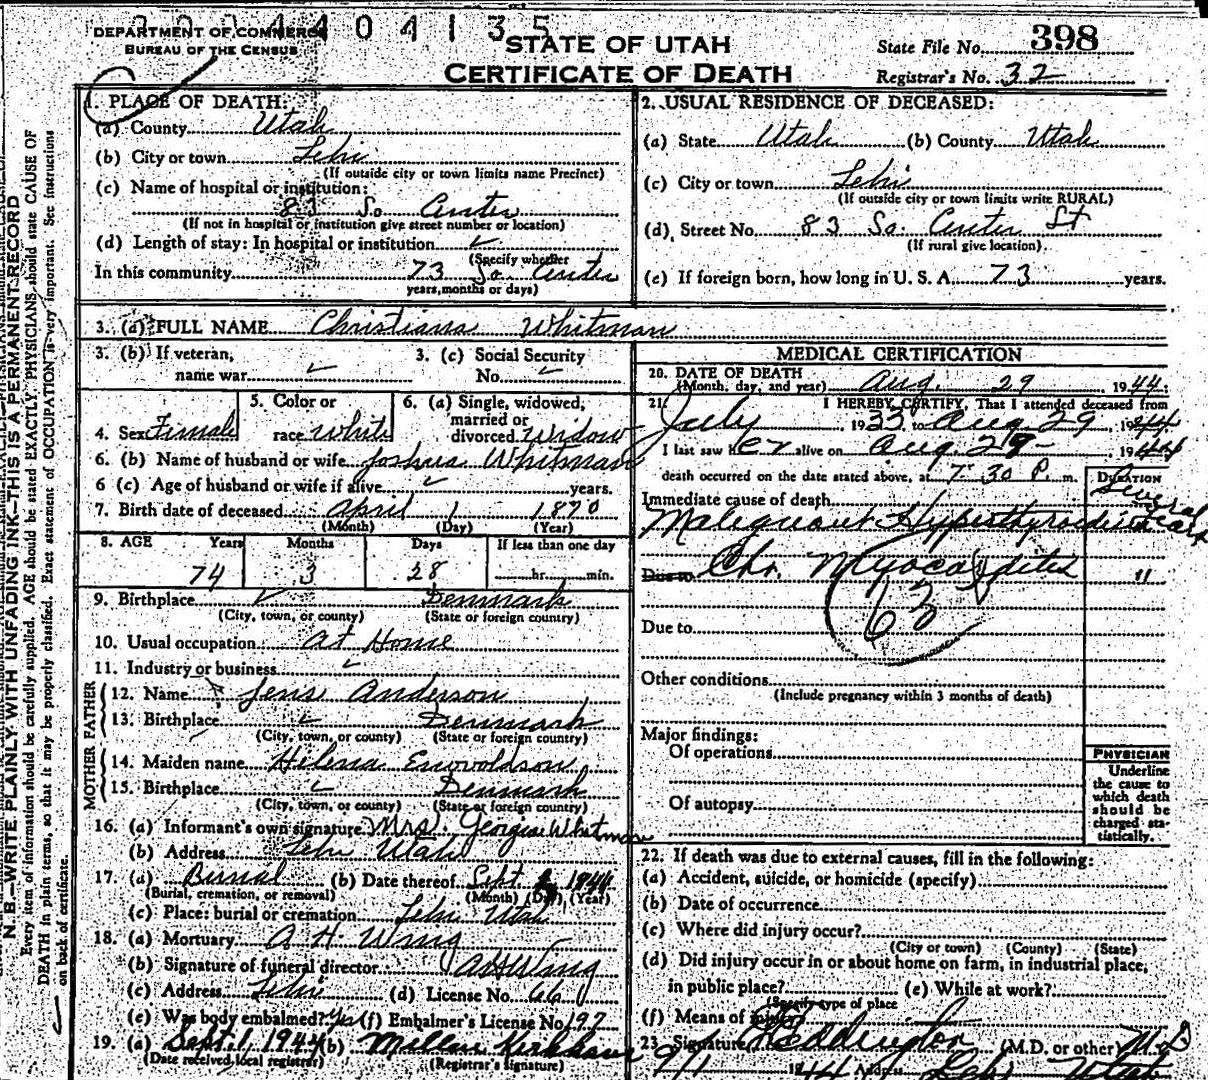 DEPARTMENT OF COMMERCE
BUREAU OF THE CENSUS
STATE OF UTAH
CERTIFICATE OF DEATH
State File No. 398
Registrar's No. 32
1. PLACE OF DEATH:
(a) County Utah
(b) City or town Lehi
(If outside city or town limits name Precinct)
(c) Name of hospital or institution:
83 So Center
(If not in hospital or institution give street number or location)
(d) Length of stay: In hospital or institution ✓
(Specify whether
In this community 73 So. Center
years, months or days)
2. USUAL RESIDENCE OF DECEASED:
(a) State Utah (b) County Utah
(c) City or town Lehi
(If outside city or town limits write RURAL)
(d) Street No. 83 So. Center St
(If rural give location)
(e) If foreign born, how long in U. S. A. 73 years.
3. (a) FULL NAME Christiana Whitman
3. (b) If veteran, name war ✓
3. (c) Social Security No. ✓
4. Sex Female
5. Color or race White
6. (a) Single, widowed, married or divorced Widow
6. (b) Name of husband or wife Joshua Whitman
6 (c) Age of husband or wife if alive ✓ years.
7. Birth date of deceased April 1 1870
(Month) (Day) (Year)
8. AGE Years Months Days If less than one day
74 3 28 hr. min.
9. Birthplace ✓ Denmark
(City, town, or county) (State or foreign country)
10. Usual occupation At Home
11. Industry or business ✓
FATHER
12. Name Jens Anderson
13. Birthplace ✓ Denmark
(City, town, or county) (State or foreign country)
MOTHER
14. Maiden name Helena Enwoldson
15. Birthplace ✓ Denmark
(City, town, or county) (State or foreign country)
16. (a) Informant's own signature Mrs. Georgia Whitman
(b) Address Lehi Utah
17. (a) Burial (b) Date thereof Sept 1944
(Burial, cremation, or removal) (Month) (Day) (Year)
(c) Place: burial or cremation Lehi Utah
18. (a) Mortuary A H Wing
(b) Signature of funeral director A H Wing
(c) Address Lehi (d) License No. 66
(e) Was body embalmed? Yes (f) Embalmer's License No. 197
19. (a) Sept. 1 1944 (b)
(Date received local registrar) (Registrar's signature)
MEDICAL CERTIFICATION
20. DATE OF DEATH
(Month, day, and year) Aug. 29 1944
21. I HEREBY CERTIFY, That I attended deceased from
July 1933 to Aug 29, 1944
I last saw her alive on Aug. 29 1944
death occurred on the date stated above, at 7:30 P. m.
DURATION
Immediate cause of death Several years
Malignant Hyperthyroidism
Due to Chr. Myocarditis "
63
Due to
Other conditions
(Include pregnancy within 3 months of death)
Major findings:
Of operations
Of autopsy
PHYSICIAN
Underline
the cause to
which death
should be
charged sta-
tistically.
22. If death was due to external causes, fill in the following:
(a) Accident, suicide, or homicide (specify)
(b) Date of occurrence
(c) Where did injury occur?
(City or town) (County) (State)
(d) Did injury occur in or about home on farm, in industrial place,
in public place? (e) While at work?
(Specify type of place
(f) Means of injury
23 Signature Eddington (M.D. or other) M.D
9/1 1944 Address Lehi Utah
N. B.—WRITE PLAINLY WITH UNFADING INK—THIS IS A PERMANENT RECORD
Every item of information should be carefully supplied. AGE should be stated EXACTLY. PHYSICIANS should state CAUSE OF
DEATH in plain terms, so that it may be properly classified. Exact statement of OCCUPATION is very important. See instructions
on back of certificate.